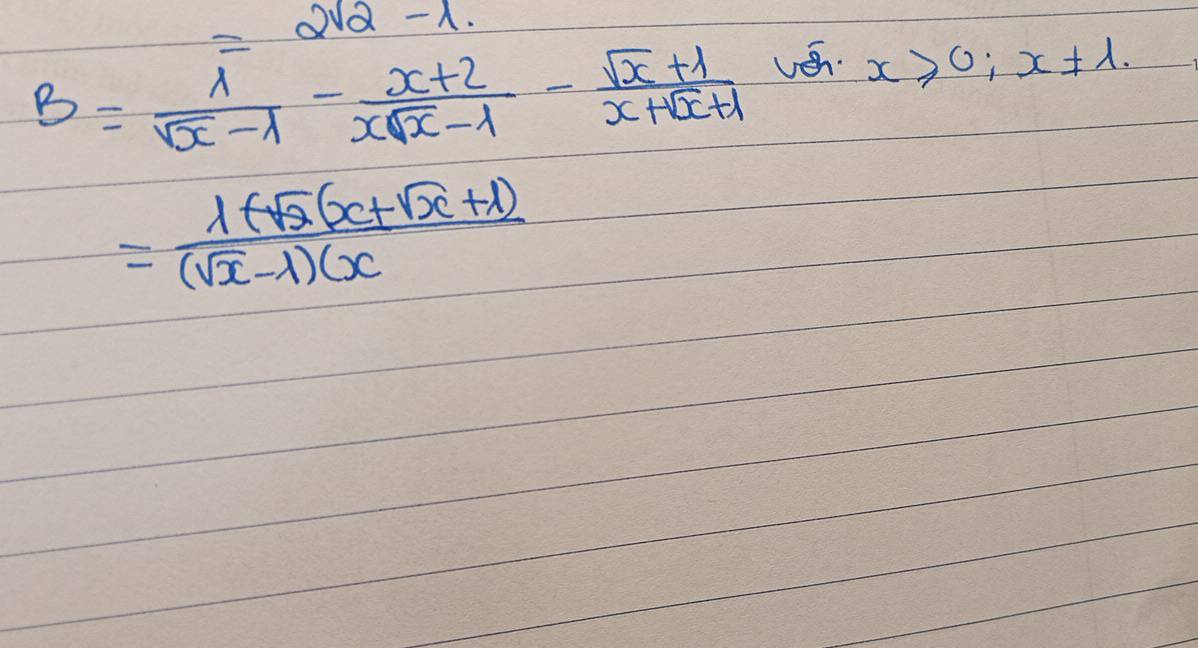 = 2√2 - 1.
B = 1/(√x - 1) - (x+2)/(x√x - 1) - (√x + 1)/(x+√x+1) với x ⩾ 0; x ≠ 1.
= 1(√x(x+√x+1)/(√x - 1)(x